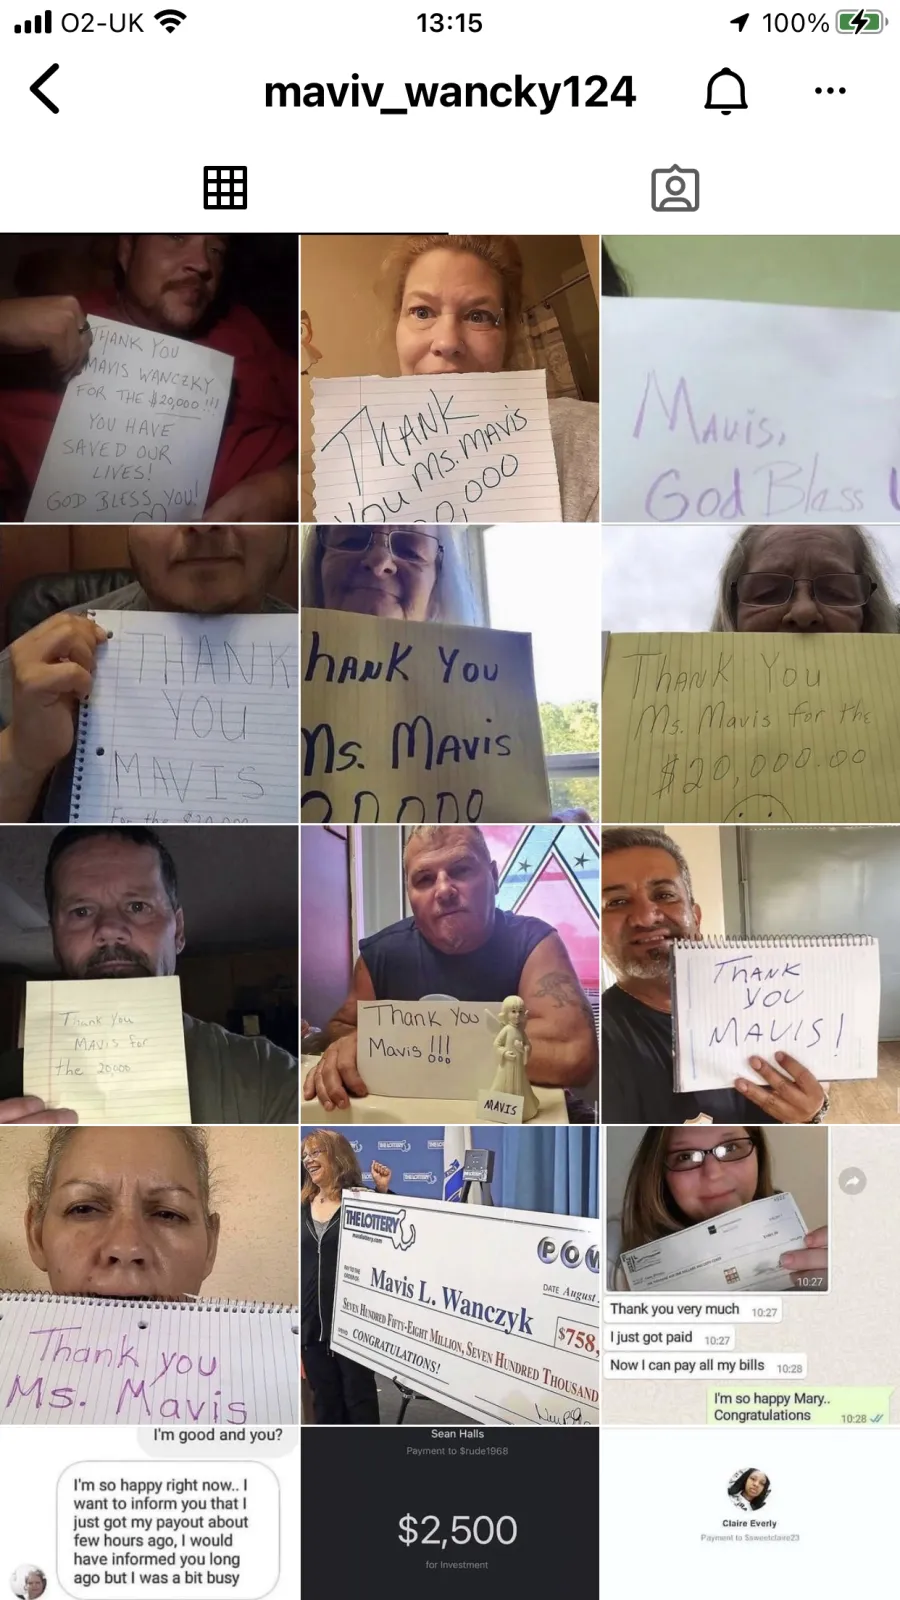 O2-UK
13:15
100%
maviv_wancky124
THANK YOU
MAVIS WANCZKY
FOR THE $20,000 !!!
YOU HAVE
SAVED OUR
LIVES!
GOD BLESS YOU!
THANK
You Ms. MAVIS
0,000
MAVIS,
God Bless
THANK
YOU
MAVIS
For the $20,000
hANK YOU
Ms. MAVIS
20,000
THANK YOU
Ms. Mavis for the
$20,000.00
Thank You
MAVIS for
the 20,000
Thank You
Mavis !!!
MAVIS
THANK
YOU
MAVIS!
Thank you
Ms. Mavis
THE LOTTERY
masslottery.com
POW
DATE August
PAY TO THE
ORDER OF:
Mavis L. Wanczyk
$758,
SEVEN HUNDRED FIFTY-EIGHT MILLION, SEVEN HUNDRED THOUSAND
CONGRATULATIONS!
10:27
Thank you very much 10:27
I just got paid 10:27
Now I can pay all my bills 10:28
I'm so happy Mary..
Congratulations 10:28
I'm good and you?
I'm so happy right now.. I
want to inform you that I
just got my payout about
few hours ago, I would
have informed you long
ago but I was a bit busy
Sean Halls
Payment to $rude1968
$2,500
for Investment
Claire Everly
Payment to $sweetclaire23